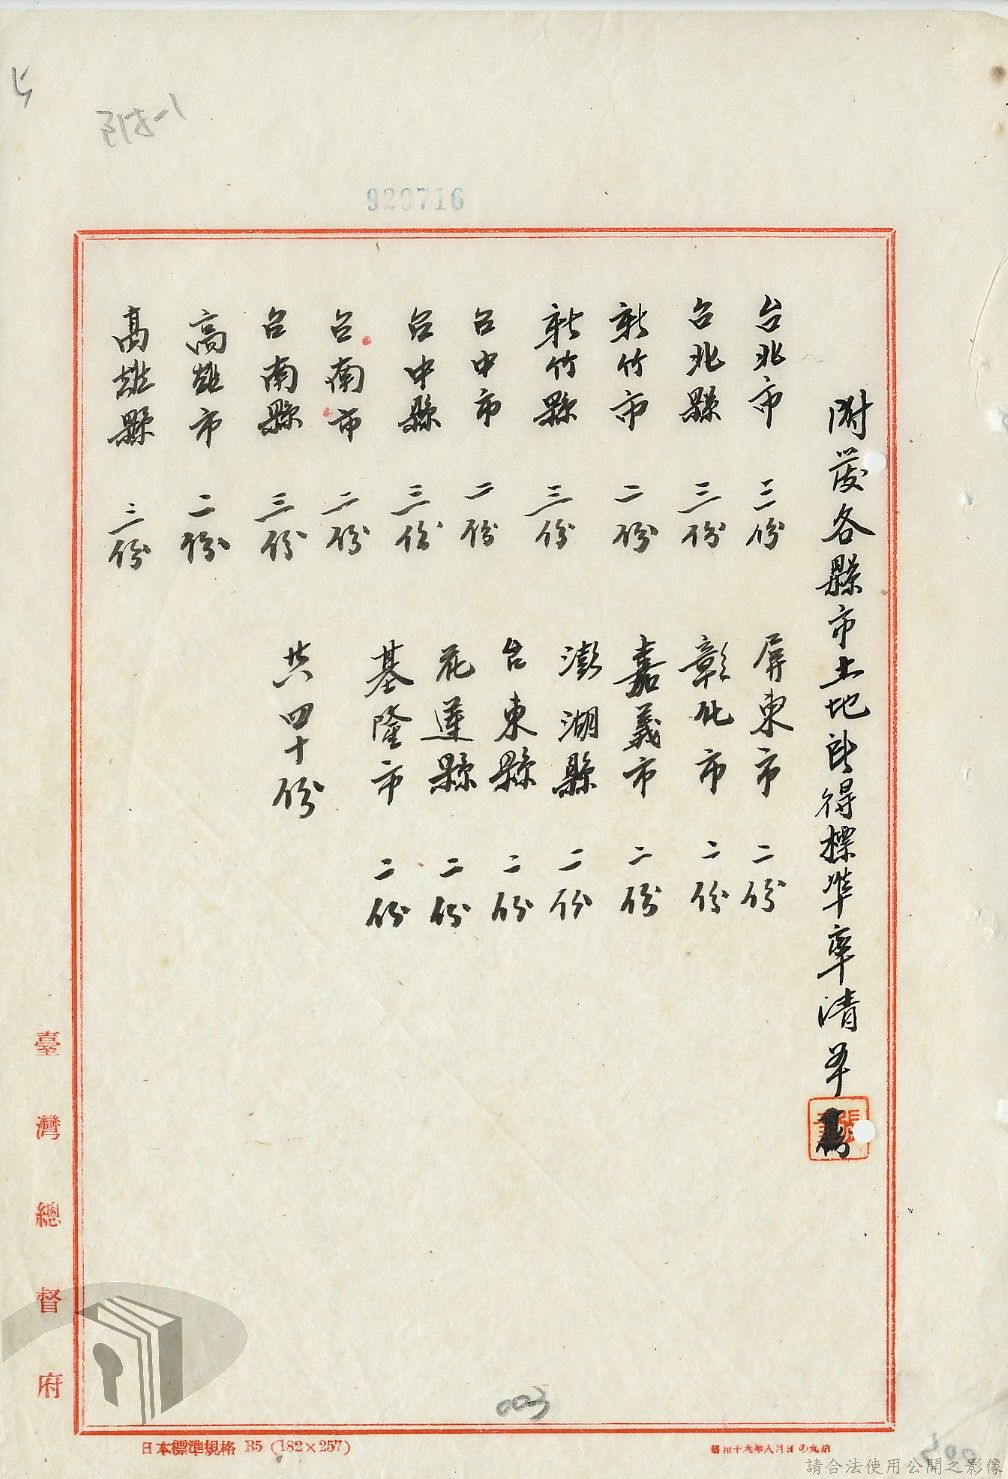 附發各縣市土地所得標準率清單
台北市 三份
台北縣 三份
新竹市 二份
新竹縣 三份
台中市 二份
台中縣 三份
台南市 二份
台南縣 三份
高雄市 二份
高雄縣 三份
屏東市 二份
彰化市 二份
嘉義市 二份
澎湖縣 二份
台東縣 二份
花蓮縣 二份
基隆市 二份
共四十份
920716
臺灣總督府
003
日本標準規格 B5 (182×257)
請合法使用公開之影像